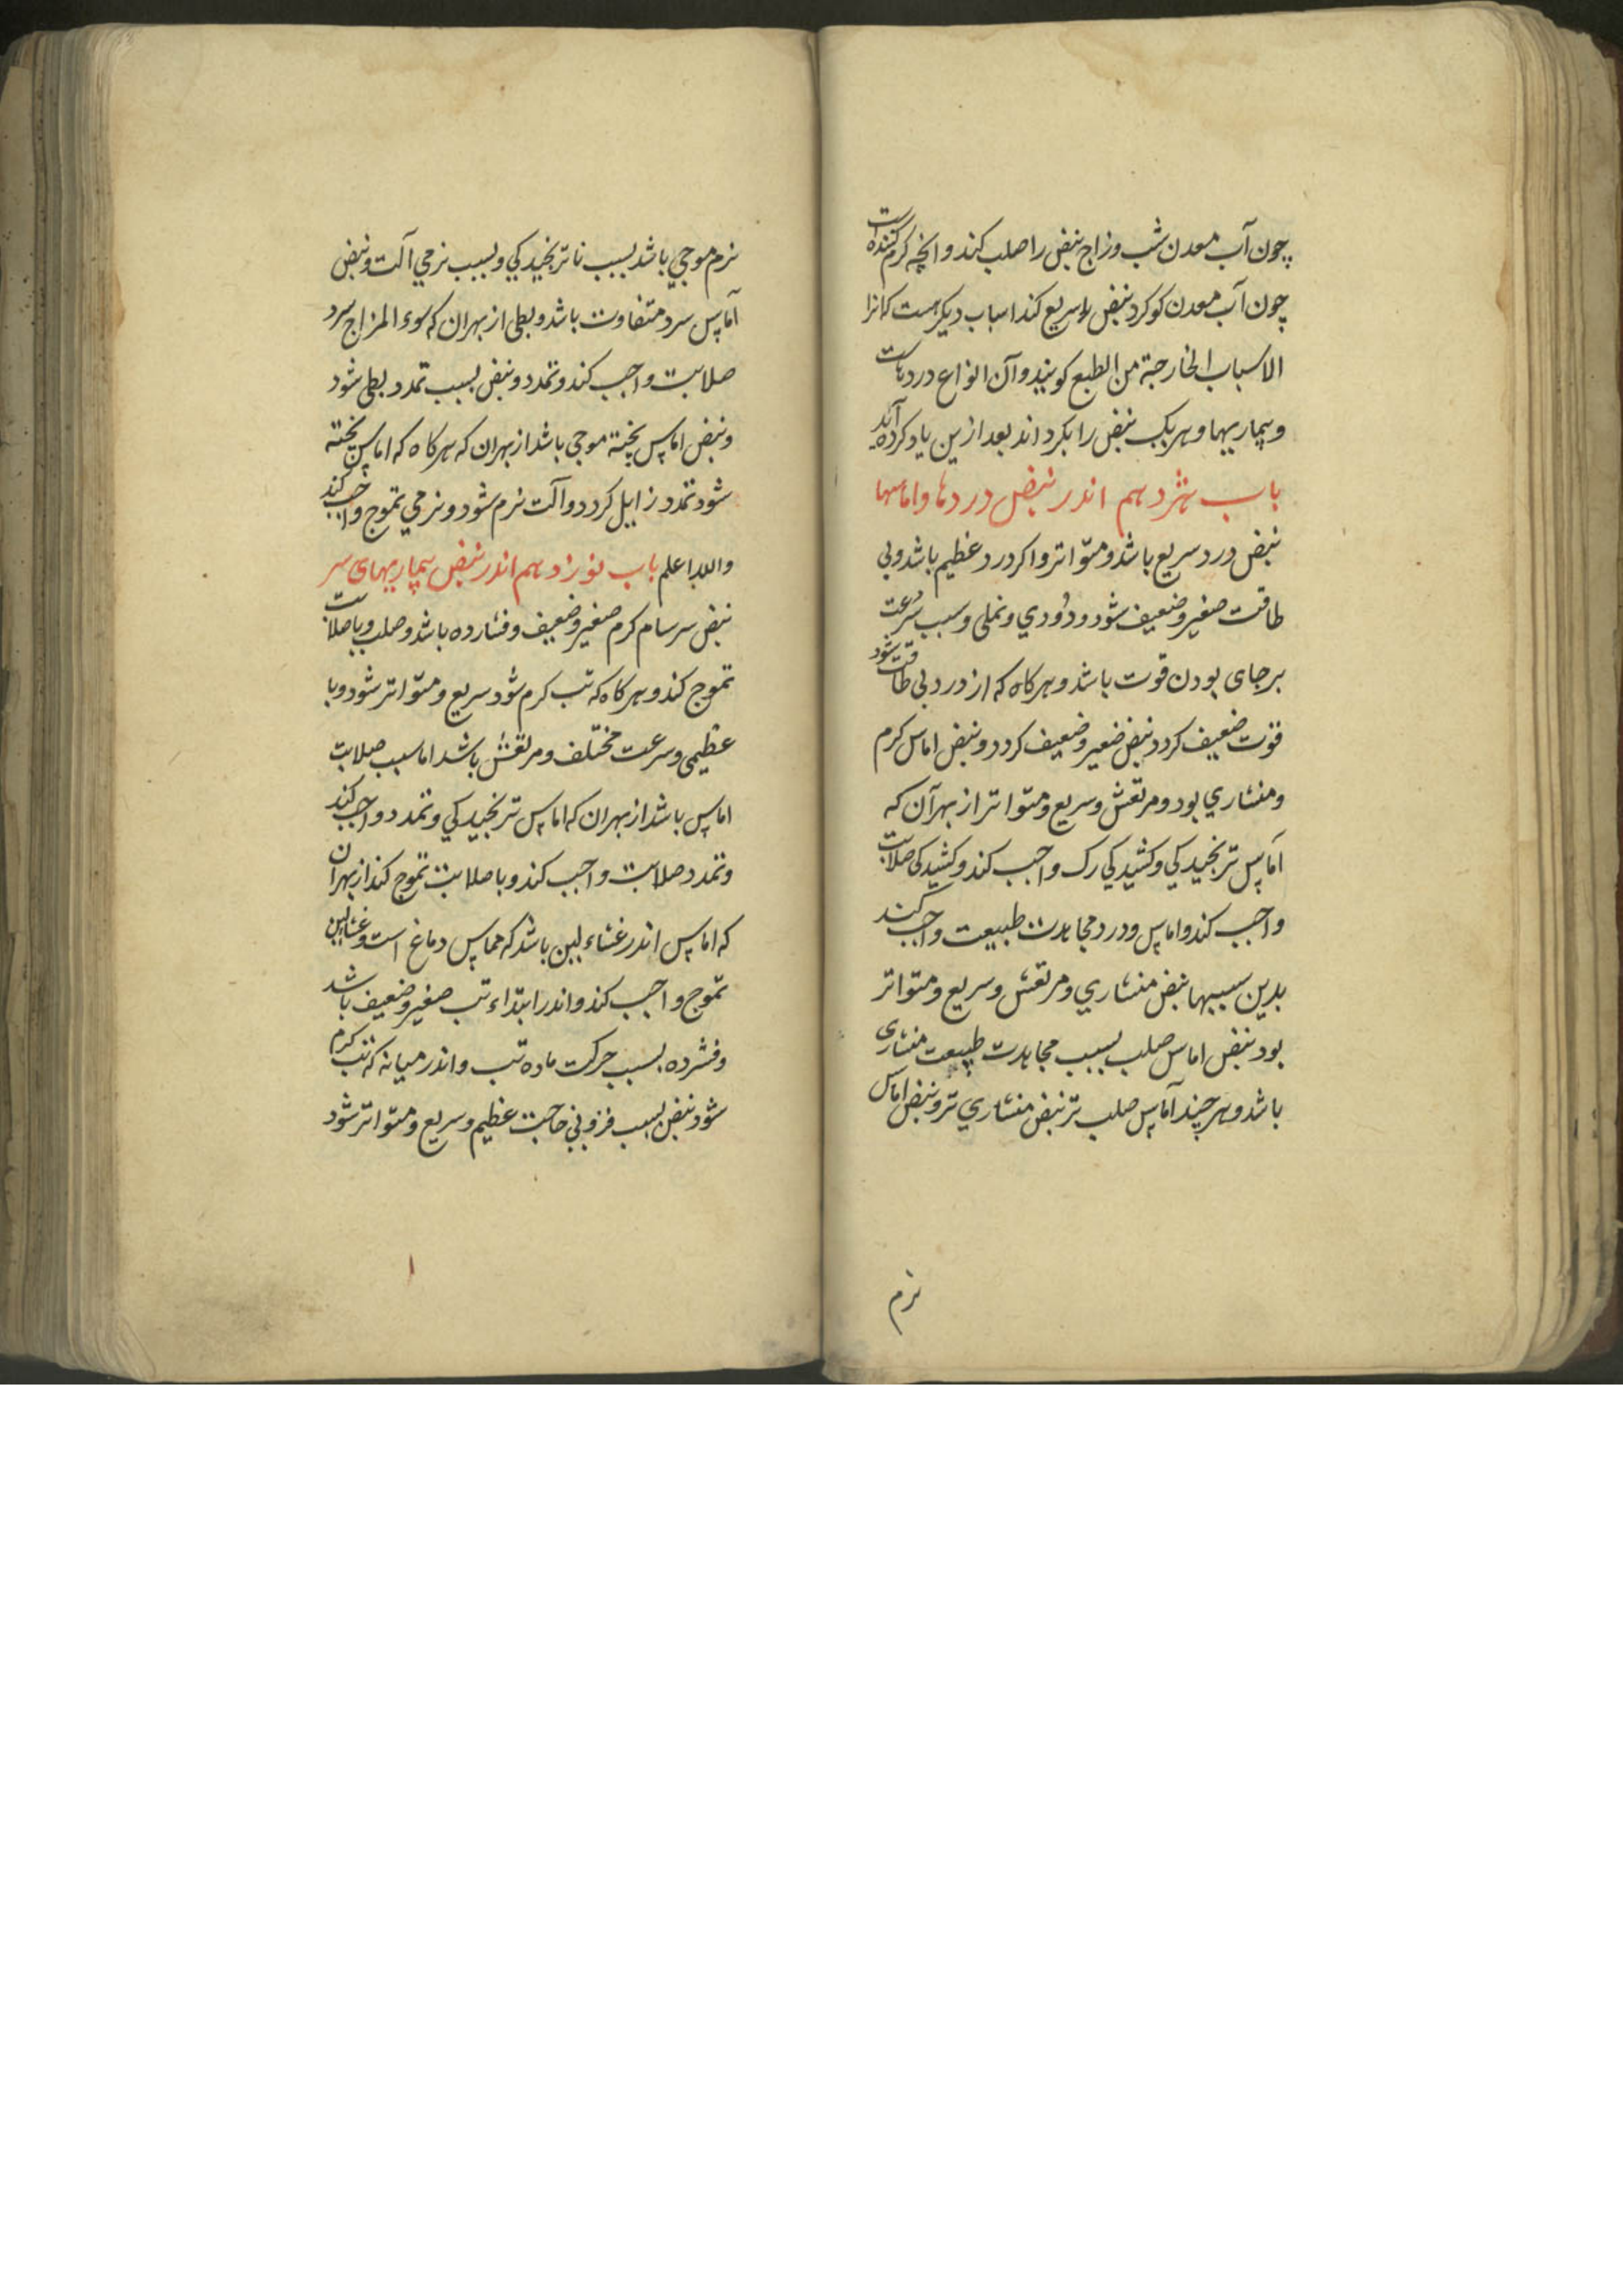 چون آب معدن شب وزاج نبض را صلب کند وانچه کرم کننده است
چون آب معدن کوکرد نبض را سریع کند اسباب دیکر هست که انرا
الاسباب الخارجة من الطبع کویند وآن انواع دردهاست
وبیماریها وهریک نبض را بکرداند بعد ازین یاد کرده آید
باب هژدهم اندر نبض دردها واماسها
نبض درد سریع باشد ومتواتر واکر درد عظیم باشد وبی
طاقت صغیر وضعیف شود ودودي ونملی وسبب سرعت
برجای بودن قوت باشد وهرکاه که از درد بی طاقت شود
قوت ضعیف کردد نبض صغیر وضعیف کردد ونبض اماس کرم
ومنشاري بود ومرتعش وسریع ومتواتر از بهر آن که
آماس ترنجیدکي وکشیدکي رک واجب کند وکشیدکی صلابت
واجب کند واماس ودرد مجاهدت طبیعت واجب کند
بدین سببها نبض منشاري ومرتعش وسریع ومتواتر
بود نبض اماس صلب بسبب مجاهدت طبیعت منشاری
باشد وهر چند آماس صلب تر نبض منشاري تر ونبض اماس
نرم
نرم موجي باشد بسبب ناترنجیدکي وبسبب نرمي آلت ونبض
آماس سرد متفاوت باشد وبطی از بهر ان که سوء المزاج سرد
صلابت واجب کند وتمدد ونبض بسبب تمدد بطی شود
ونبض اماس پخته موجی باشد از بهر ان که هر کاه که اماس پخته
شود تمدد زایل کردد وآلت نرم شود ونرمي تموج واجب کند
والله اعلم باب نوزدهم اندر نبض بیماریهای سر
نبض سرسام کرم صغیر وضعیف وفشارده باشد وصلب وباصلابت
تموج کند وهرکاه که تب کرم شود سریع ومتواتر شود وبا
عظیمی وسرعت مختلف ومرتعش باشد اما سبب صلابت
اماس باشد از بهر ان که اماس ترنجیدکي وتمدد واجب کند
وتمدد صلابت واجب کند وباصلابت تموج کند از بهر ان
که اماس اندر غشاء لین باشد که مماس دماغ است وغشا لین
تموج واجب کند واندر ابتداء تب صغیر وضعیف باشد
وفشرده بسبب حرکت ماده تب واندر میانه که تب کرم
شود نبض بسبب فزونی حاجت عظیم وسریع ومتواتر شود